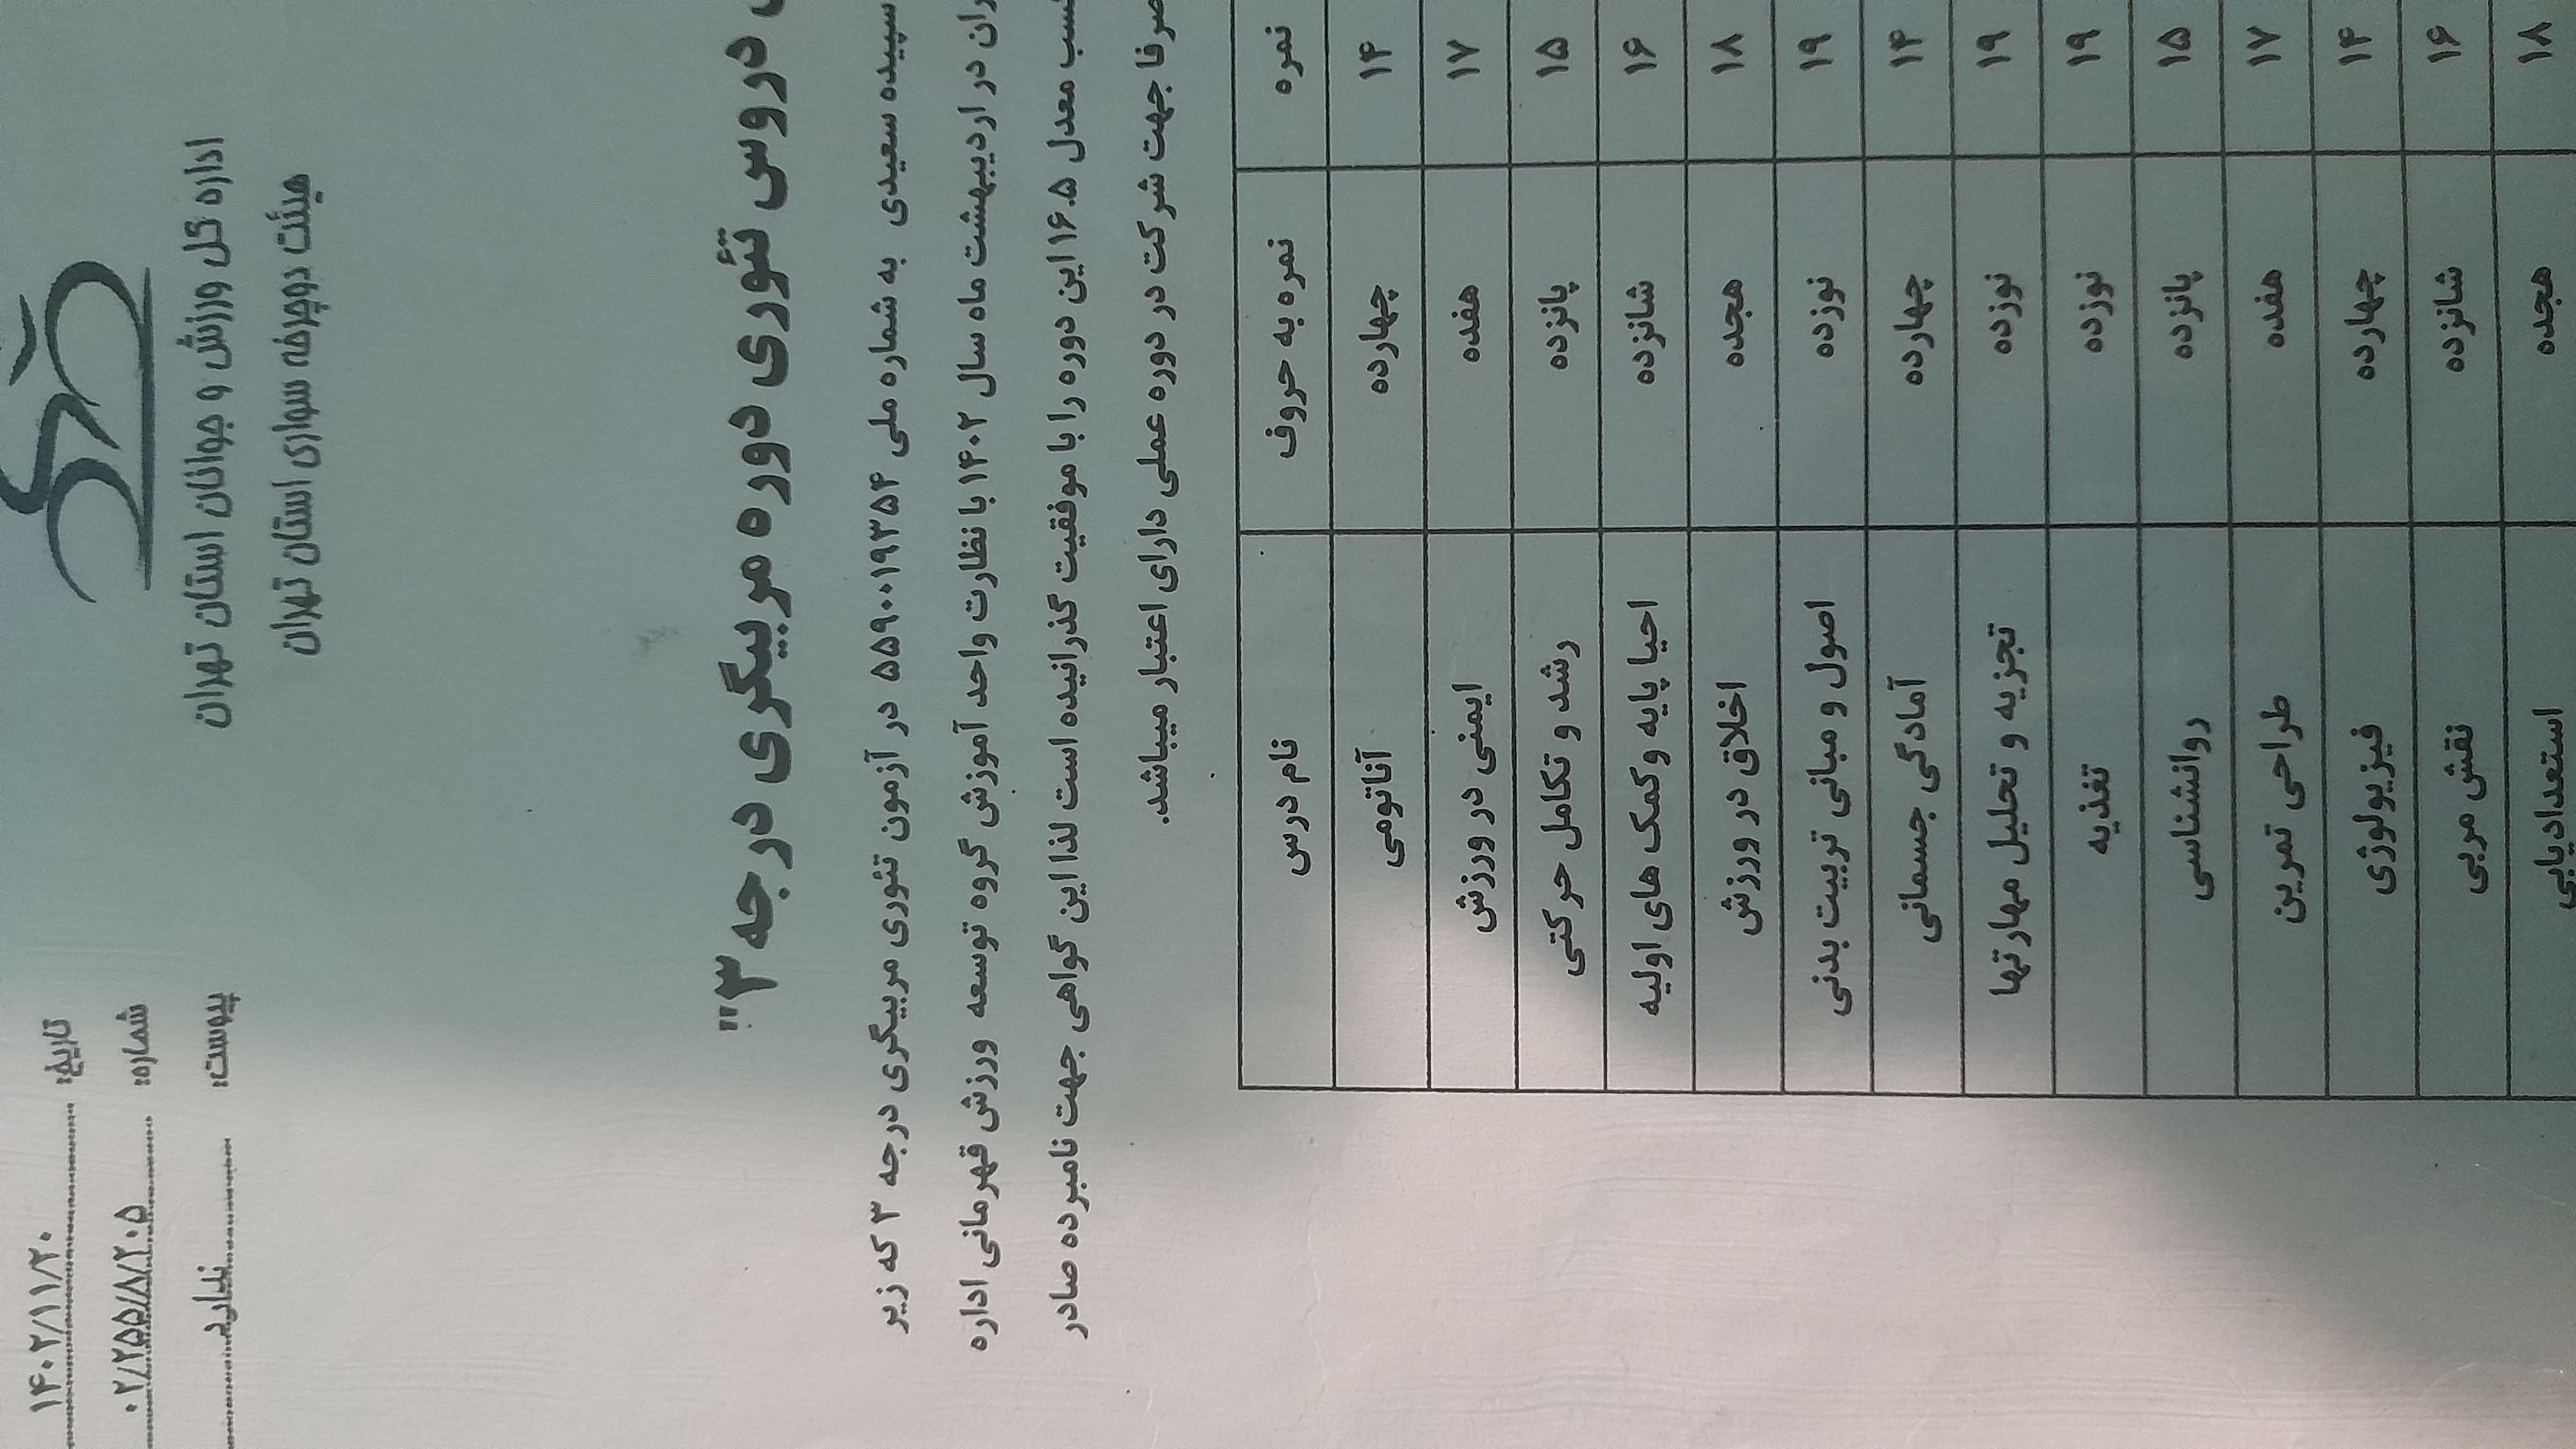 اداره کل ورزش و جوانان استان تهران
هیئت دوچرخه سواری استان تهران
تاریخ: ۱۴۰۲/۱۱/۲۰
شماره: ۰۲/۲۵۵/۸/۲۰۵
پیوست: ندارد
دروس تئوری دوره مربیگری درجه ۳"
سپیده سعیدی به شماره ملی ۵۵۹۰۰۱۹۳۵۴ در آزمون تئوری مربیگری درجه ۳ که زیر
در اردیبهشت ماه سال ۱۴۰۲ با نظارت واحد آموزش گروه توسعه ورزش قهرمانی اداره
معدل ۱۶.۵ این دوره را با موفقیت گذرانیده است لذا این گواهی جهت نامبرده صادر
صرفا جهت شرکت در دوره عملی دارای اعتبار میباشد.
نمره نمره به حروف نام درس
۱۴ چهارده آناتومی
۱۷ هفده ایمنی در ورزش
۱۵ پانزده رشد و تکامل حرکتی
۱۶ شانزده احیا پایه و کمک های اولیه
۱۸ هجده اخلاق در ورزش
۱۹ نوزده اصول و مبانی تربیت بدنی
۱۴ چهارده آمادگی جسمانی
۱۹ نوزده تجزیه و تحلیل مهارتها
۱۹ نوزده تغذیه
۱۵ پانزده روانشناسی
۱۷ هفده طراحی تمرین
۱۴ چهارده فیزیولوژی
۱۶ شانزده نقش مربی
۱۸ هجده استعدادیابی